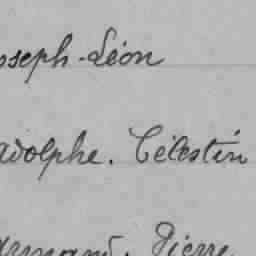 oseph-Léon
adolphe. Célestin
Armand. Pierre